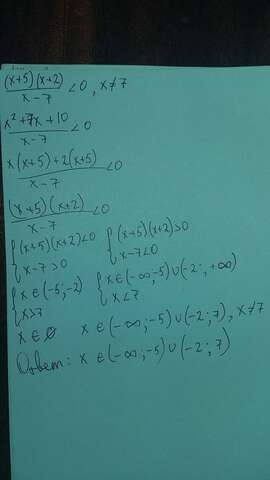 (x+5)(x+2)/x-7 <0, x≠7
x²+7x+10/x-7 <0
x(x+5)+2(x+5)/x-7 <0
(x+5)(x+2)/x-7 <0
{(x+5)(x+2)<0 {(x+5)(x+2)>0
x-7>0 x-7<0
{x∈(-5;-2) {x∈(-∞;-5)∪(-2;+∞)
x>7 x<7
x∈∅ x∈(-∞;-5)∪(-2;7), x≠7
Ответ: x∈(-∞;-5)∪(-2;7)